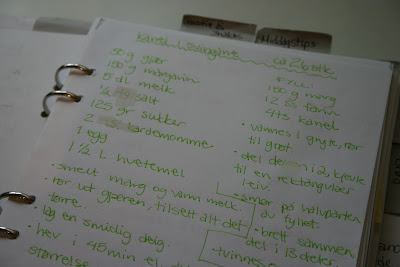 Middagstips
ca 26 stk
50 g gjær
150 g margarin
5 dl melk
¼ salt
125 gr sukker
2 kardemomme
1 egg
1 ½ L hvetemel
• smelt marg og varm melk.
• rør ut gjæren, tilsett alt det
tørre.
lag en smidig deig.
• hev i 45 min el
størrelse
FYLL:
150 g marg
4 ts kanel
• varmes i gryte, rør
til grøt
• del deigen i 2, kjevle
til en rektangulær
leiv.
- smør på halvparten
av fyllet.
• brett sammen
del i 13 deler
- tvinnes